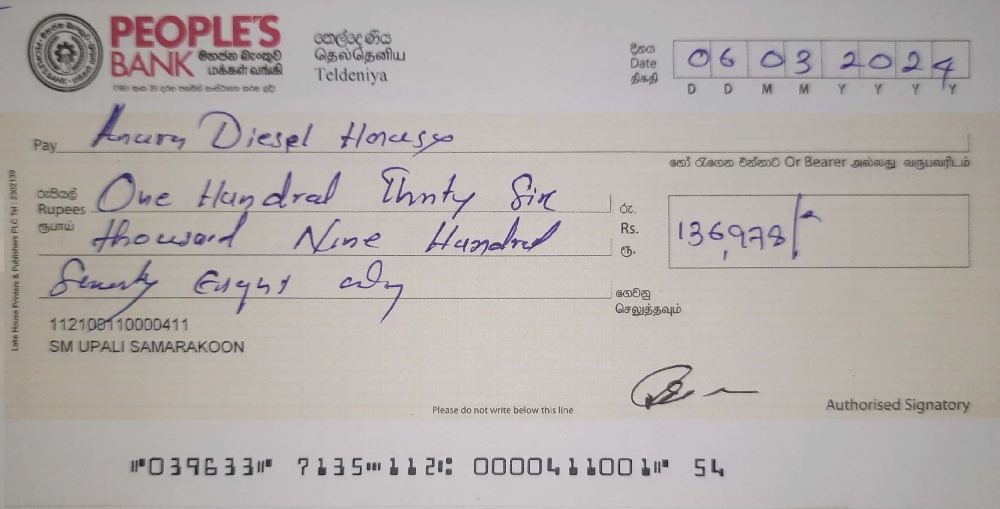 PEOPLE'S
BANK මහජන බැංකුව
மக்கள் வங்கி
තෙල්දෙණිය
தெல்தெனிய
Teldeniya
දිනය
Date
திகதி
06 03 2024
D D M M Y Y Y Y
Pay Diesel
හෝ රැගෙන එන්නාට Or Bearer அல்லது வருபவரிடம்
රුපියල්
Rupees
ரூபாய்
One Hundred Thirty Six
thousand Nine Hundred
Seventy Eight only
රු.
Rs.
ரூ.
136,978/-
ගෙවනු
செலுத்தவும்
112100110000411
SM UPALI SAMARAKOON
Please do not write below this line
Authorised Signatory
Lake House Printers & Publishers PLC Tel : 2302139
⑈039633⑈ 7135⑉112⑆ 0000411001⑈ 54